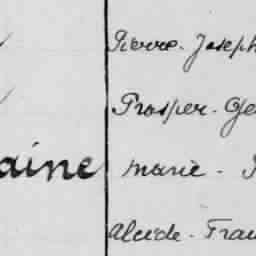 Pierre-Joseph
Prosper-Ge
aine Marie-
Alcide-Fran